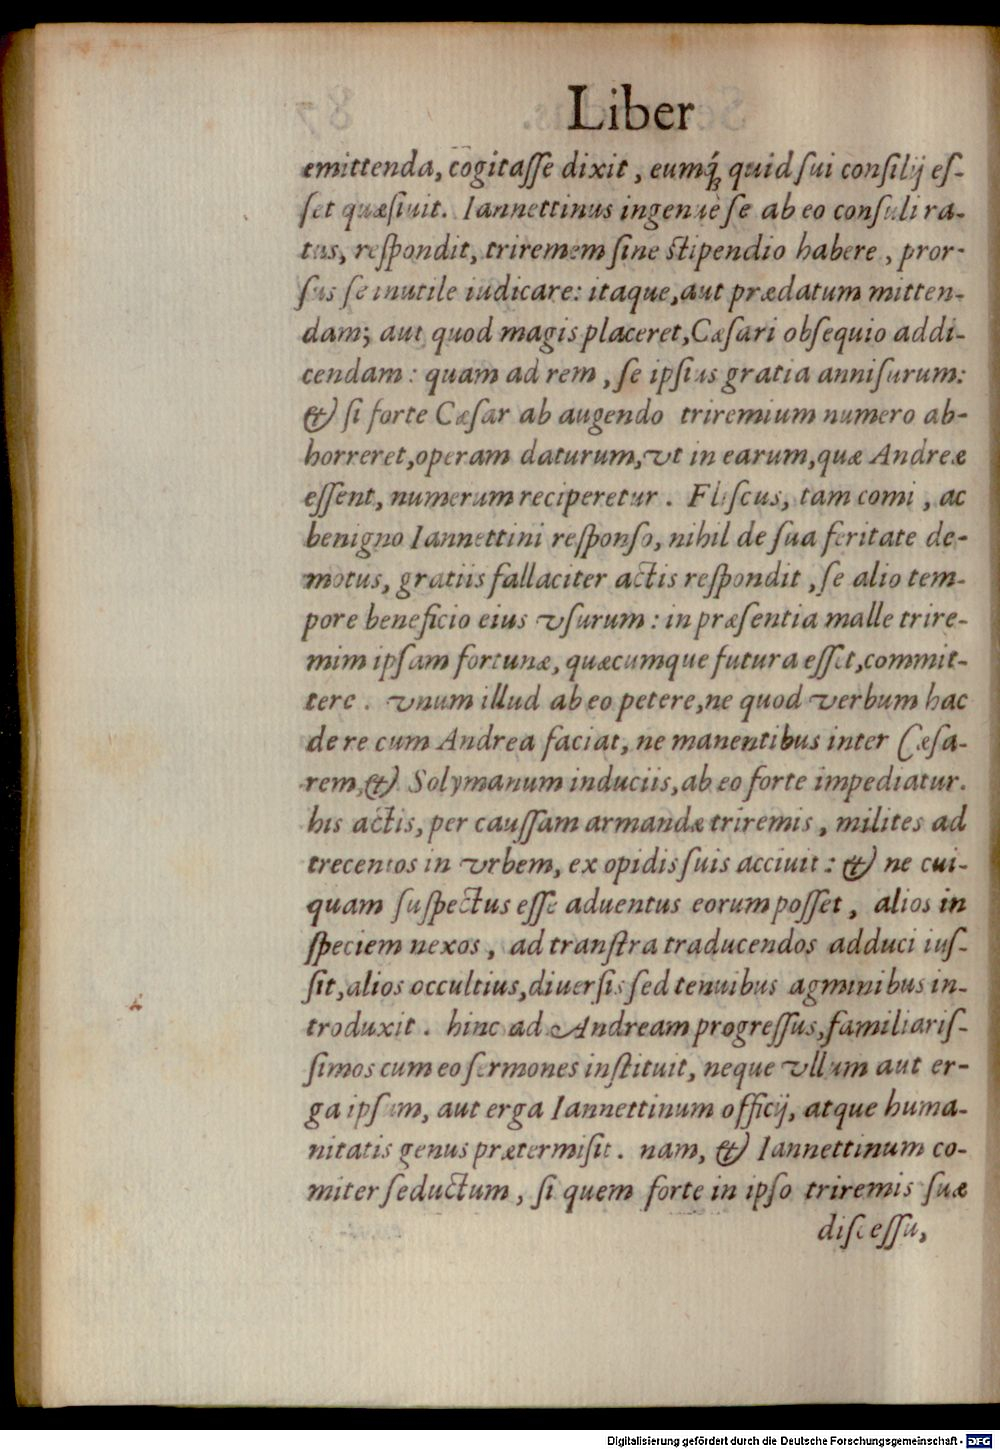 Liber
emittenda, cogitaſſe dixit, eumq́; quid ſui conſilij eſ-
ſet quæſiuit. Iannettinus ingenuè ſe ab eo conſuli ra-
tus, reſpondit, triremem ſine ſtipendio habere, pror-
ſus ſe inutile iudicare: itaque, aut prædatum mitten-
dam; aut quod magis placeret, Cæſari obſequio addi-
cendam: quam ad rem, ſe ipſius gratia anniſurum:
& ſi forte Cæſar ab augendo triremium numero ab-
horreret, operam daturum, vt in earum, quæ Andreæ
eſſent, numerum reciperetur. Fliſcus, tam comi, ac
benigno Iannettini reſponſo, nihil de ſua feritate de-
motus, gratiis fallaciter actis reſpondit, ſe alio tem-
pore beneficio eius vſurum: in præſentia malle trire-
mim ipſam fortunæ, quæcumque futura eſſet, commit-
tere. vnum illud ab eo petere, ne quod verbum hac
de re cum Andrea faciat, ne manentibus inter Cæſa-
rem, & Solymanum induciis, ab eo forte impediatur.
his actis, per cauſſam armandæ triremis, milites ad
trecentos in vrbem, ex opidis ſuis acciuit: & ne cui-
quam ſuſpectus eſſe aduentus eorum poſſet, alios in
ſpeciem nexos, ad tranſtra traducendos adduci iuſ-
ſit, alios occultius, diuerſis ſed tenuibus agminibus in-
troduxit. hinc ad Andream progreſſus, familiariſ-
ſimos cum eo ſermones inſtituit, neque vllum aut er-
ga ipſum, aut erga Iannettinum officij, atque huma-
nitatis genus prætermiſit. nam, & Iannettinum co-
miter ſeductum, ſi quem forte in ipſo triremis ſuæ
diſceſſu,
Digitalisierung gefördert durch die Deutsche Forschungsgemeinschaft - DFG